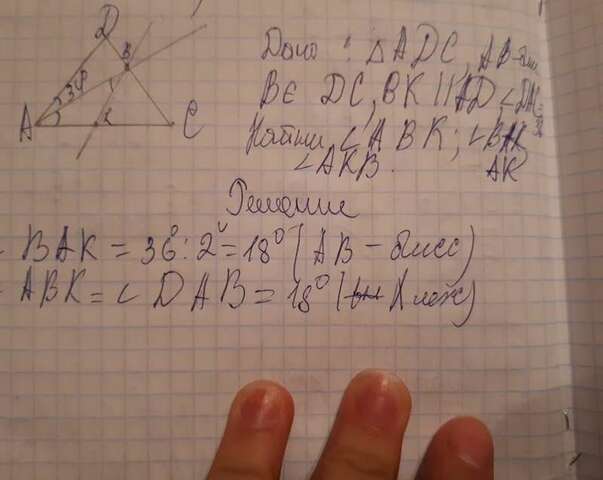 D
B
36°
1
A
K
C
Дано: △ADC, AB-бис
B∈ DC, BK || AD, ∠DAC=
Найти ∠ABK; ∠BAK
∠AKB.
AK
Решение
BAK = 36°:2=18° (AB - бисс)
ABK = ∠DAB = 18° (